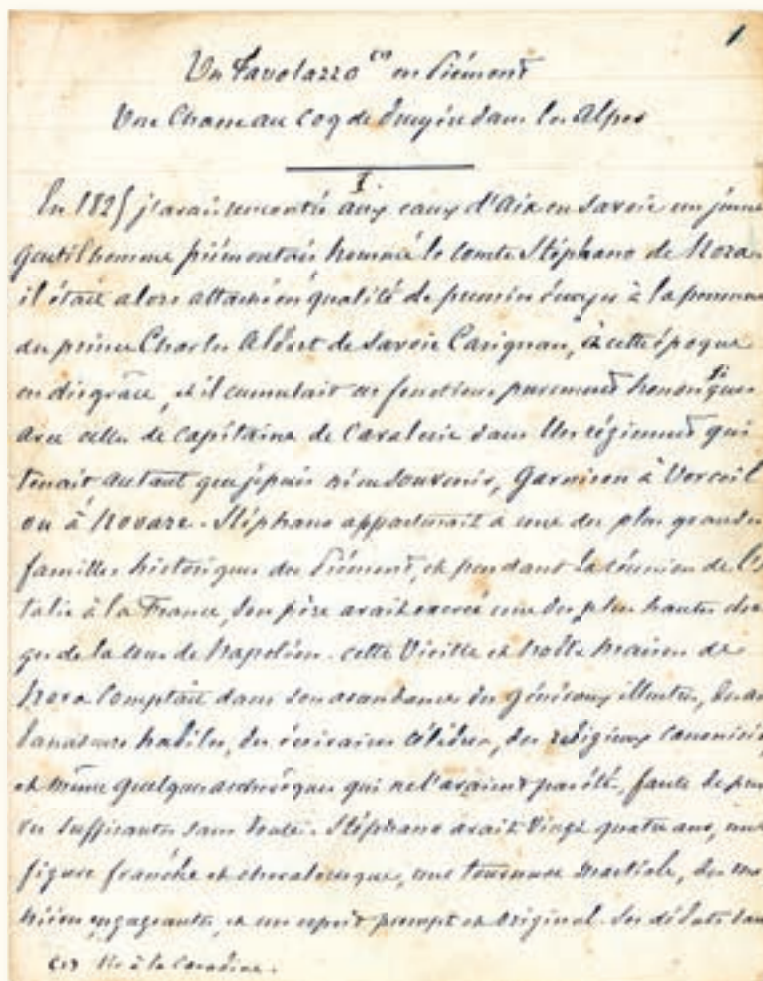 1
Un Tavolazzo (1) en Piémont
Une Chasse au coq de bruyère dans les Alpes
I.
En 1825 j'avais rencontré aux eaux d'Aix en Savoie un jeune
gentilhomme piémontais nommé le comte Stéphano de Nora.
il était alors attaché en qualité de premier écuyer à la personne
du prince Charles Albert de Savoie Carignan, à cette époque
en disgrâce, et il cumulait ces fonctions purement honorifiques
avec celles de capitaine de Cavalerie dans un régiment qui
tenait autant que je puis m'en souvenir, garnison à Verceil
ou à Novare. Stéphano appartenait à une des plus grandes
familles historiques du Piémont, et pendant la réunion de l'I
talie à la France, son père avait exercé une des plus hautes char
ges de la cour de Napoléon. cette Vieille et noble maison de
Nora Comptait dans son ascendance des généraux illustres, des am
bassadeurs habiles, des écrivains célèbres, des religieux canonisés,
et même quelques archevêques qui ne l'avaient pas été, faute de preu
ves suffisantes sans doute. Stéphano avait vingt quatre ans, une
figure franche et chevaleresque, une tournure martiale, des ma
nières engageantes, et un esprit prompt et original. Ses débuts dans
(1) Tir à la Carabine.